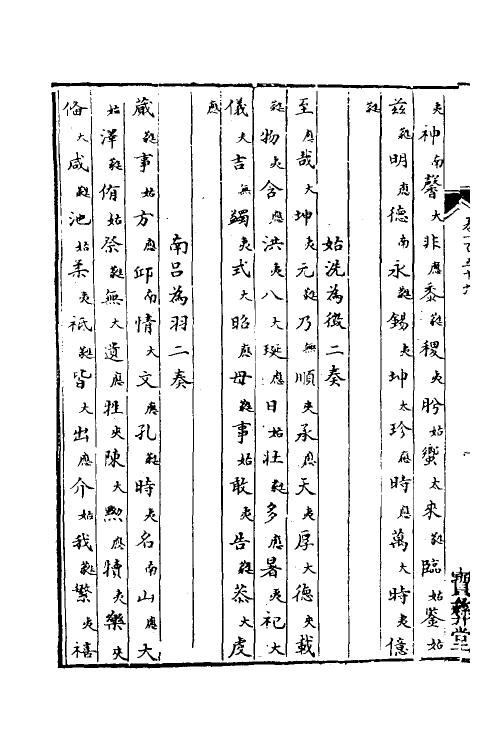 夾神南馨大非應黍蕤稷夾肸姑蠁太來蕤臨姑鉴姑
兹蕤明應德南永蕤錫夾坤太珍應時應萬大時夾億
蕤
姑洗為徵二奏
至應哉大坤夾元蕤乃無順夾承應天夾厚大德夾載
蕤物夾含應洪夾八大埏應日姑壯蕤多應暑夾祀大
儀夾吉無蠲夾式大昭應母蕤事姑敢夾告蕤恭大虔
應
南呂為羽二奏
葴蕤事姑方應邱南情大文應孔蕤時夾名南山應大
姑澤蕤侑姑祭蕤無大遺應牲夾陳大黝應犢夾樂夾
俻大咸蕤池姑柔夾祇蕤皆大出應介姑我蕤繁夾禧
寶彝堂